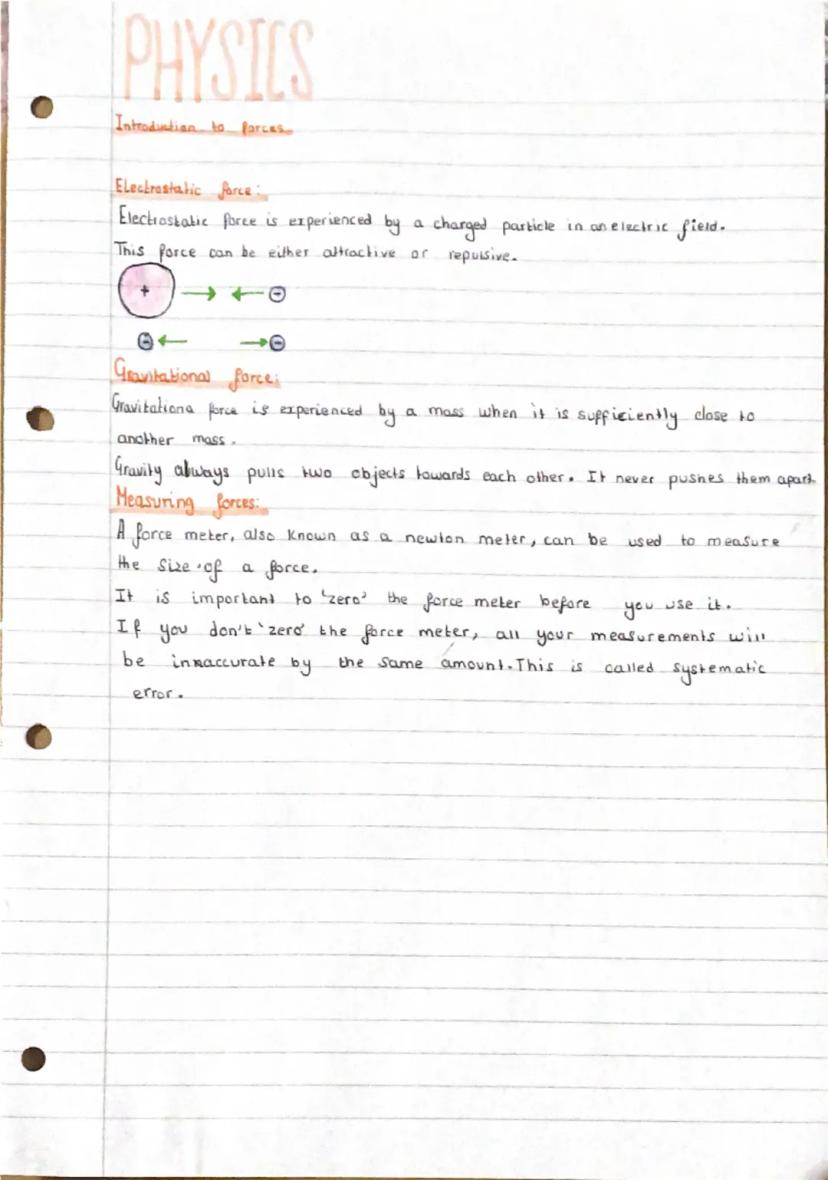 PHYSICS
Introduction to forces
Electrostatic force:
Electrostatic force is experienced by a charged particle in an electric field.
This force can be either attractive or repulsive.
+ → ← -
- ← → -
Gravitational force:
Gravitationa force is experienced by a mass when it is sufficiently close to
another mass.
Gravity always pulls two objects towards each other. It never pushes them apart.
Measuring forces:
A force meter, also known as a newton meter, can be used to measure
the size of a force.
It is important to 'zero' the force meter before you use it.
If you don't 'zero' the force meter, all your measurements will
be innaccurate by the same amount. This is called systematic
error.